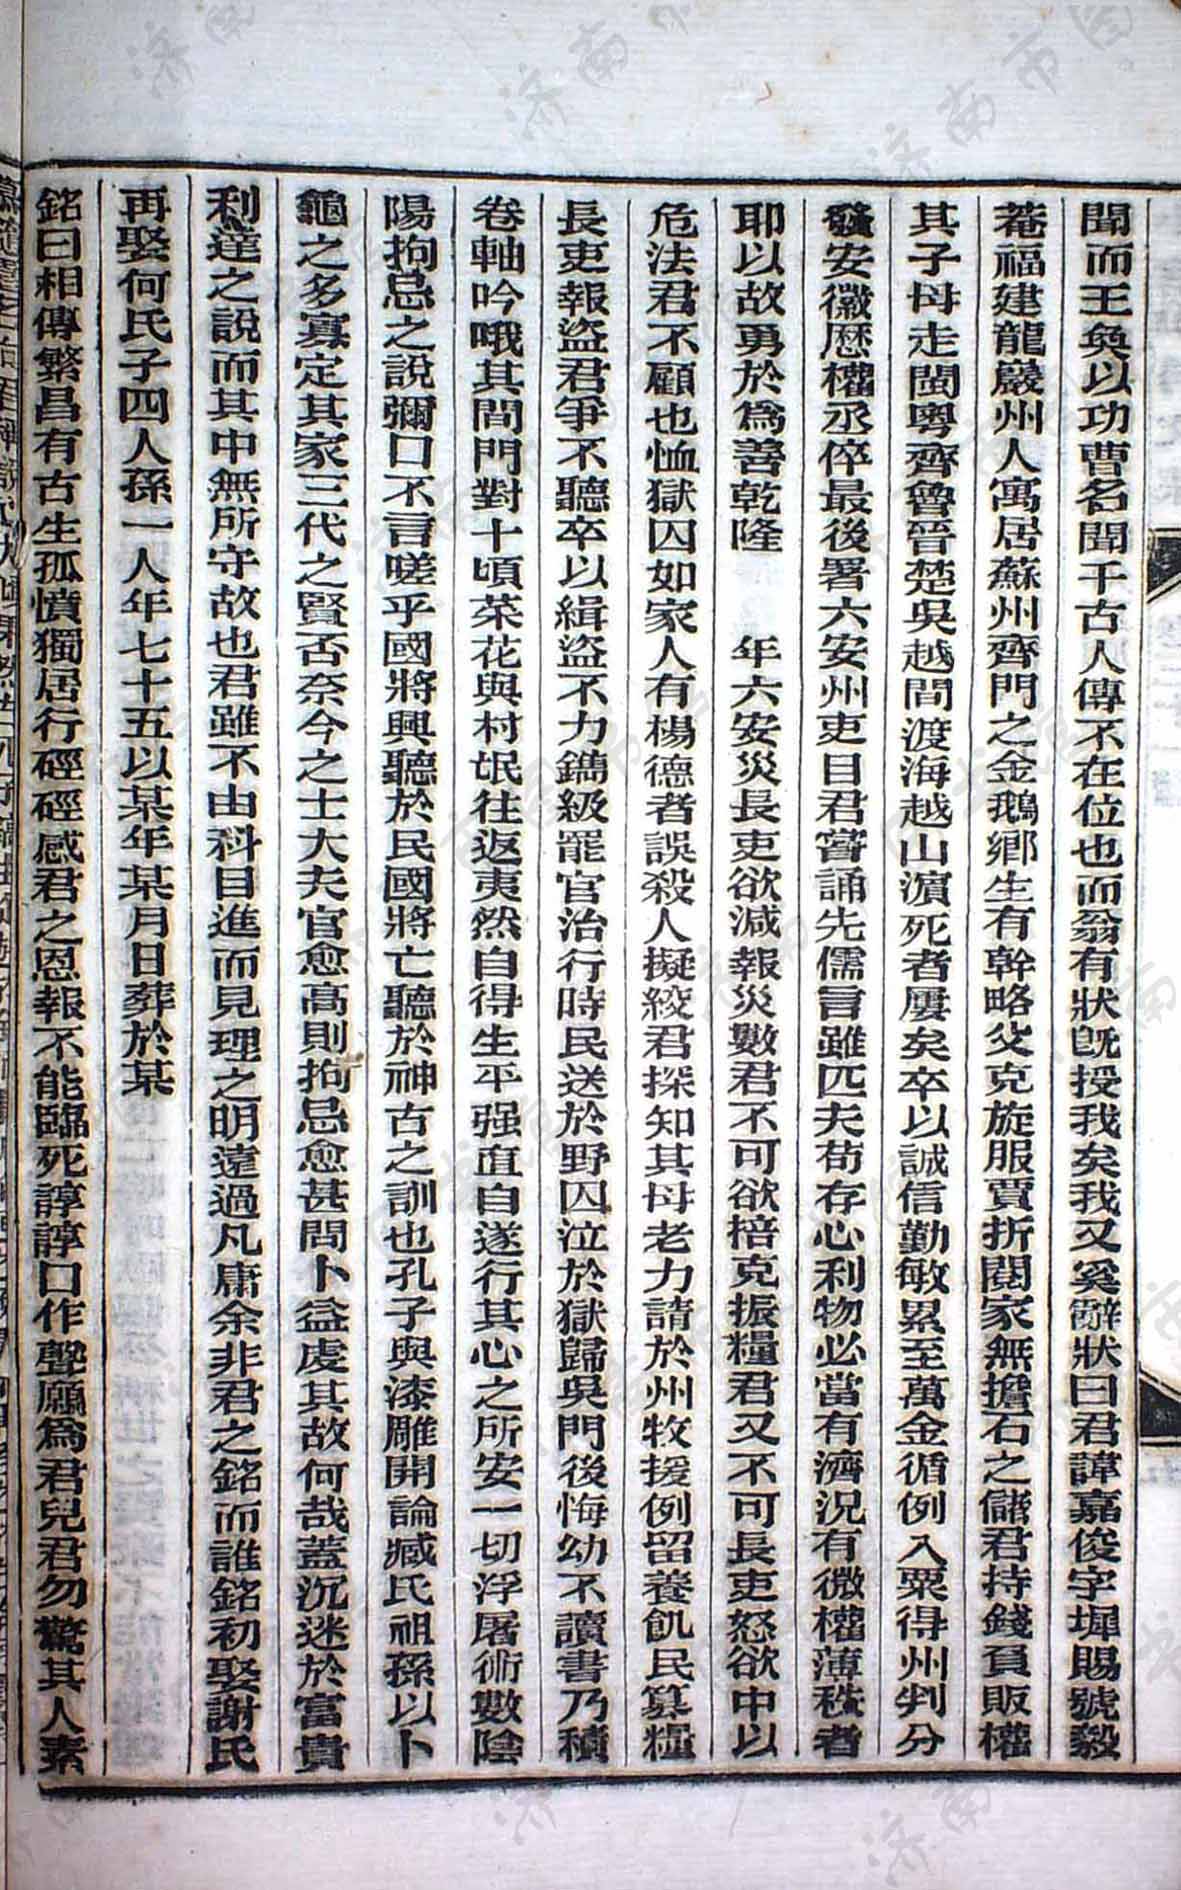 聞而王奐以功曹名聞千古人傳不在位也而翁有狀旣授我矣我又奚辭狀曰君諱嘉俊字墀賜號毅
菴福建龍巖州人寓居蘇州齊門之金鵝鄉生有幹略父克旋服賈折閱家無擔石之儲君持錢負販權
其子母走閩粵齊魯晉楚吳越間渡海越山瀕死者屢矣卒以誠信勤敏累至萬金循例入粟得州判分
發安徽歷權丞倅最後署六安州吏目君嘗誦先儒言雖匹夫苟存心利物必當有濟況有微權薄秩者
耶以故勇於爲善乾隆 年六安災長吏欲減報災數君不可欲掊克振糧君又不可長吏怒欲中以
危法君不顧也恤獄囚如家人有楊德者誤殺人擬絞君探知其母老力請於州牧援例留養飢民篡糧
長吏報盜君爭不聽卒以緝盜不力鐫級罷官治行時民送於野囚泣於獄歸吳門後悔幼不讀書乃積
卷軸吟哦其間門對十頃菜花與村氓往返夷然自得生平强直自遂行其心之所安一切浮屠術數陰
陽拘忌之說彌口不言嗟乎國將興聽於民國將亡聽於神古之訓也孔子與漆雕開論臧氏祖孫以卜
龜之多寡定其家三代之賢否奈今之士大夫官愈高則拘忌愈甚問卜益虔其故何哉蓋沉迷於富貴
利達之說而其中無所守故也君雖不由科目進而見理之明遠過凡庸余非君之銘而誰銘初娶謝氏
再娶何氏子四人孫一人年七十五以某年某月日葬於某
銘曰相傳繁昌有古生孤憤獨居行硜硜感君之恩報不能臨死諄諄口作聲願爲君兒君勿驚其人素